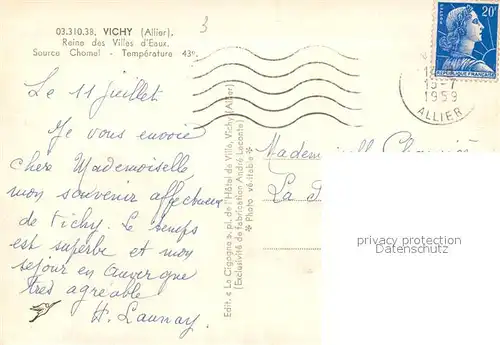 03.310.38. VICHY (Allier).
Reine des Villes d'Eaux.
Source Chomel - Température 43º.
3
Le 11 juillet
Je vous envoie
chère Mademoiselle
mon souvenir affectueux
de Vichy. Le temps
est superbe et mon
séjour en Auvergne
très agréable
H. Launay.
Edit. « La Cigogne », pl. de l'Hôtel de Ville, Vichy (Allier)
(Exclusivité de fabrication André Leconte)
* Photo véritable *
POSTES
20F
REPUBLIQUE FRANÇAISE
15-7
1959
ALLIER
Mademoiselle
La
privacy protection
Datenschutz